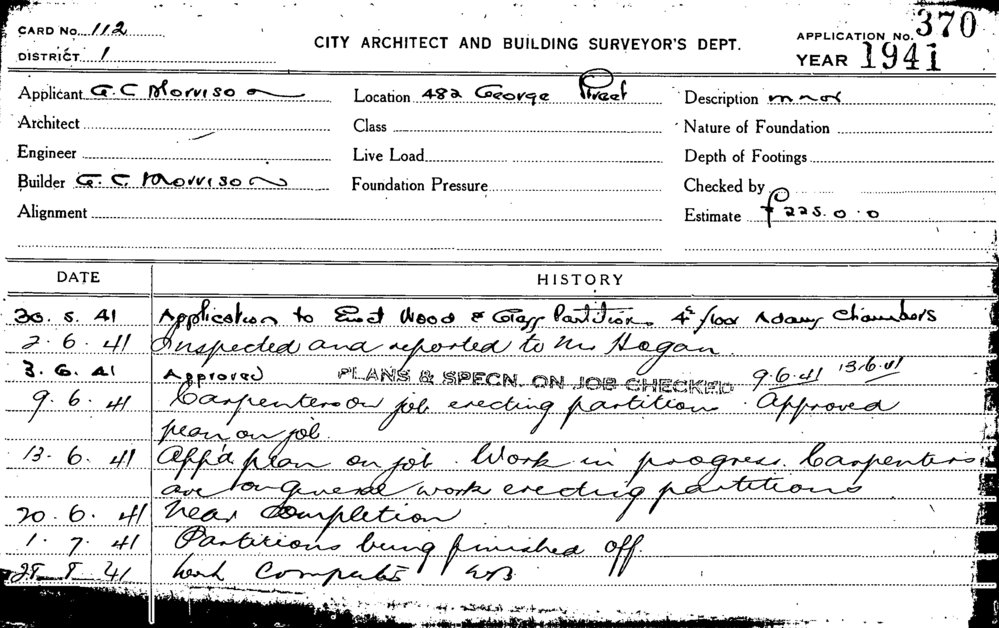 CARD No. 112
DISTRICT 1
CITY ARCHITECT AND BUILDING SURVEYOR'S DEPT.
APPLICATION No. 370
YEAR 1941
Applicant G. C Morrison Location 482 George Street Description minor
Architect Class Nature of Foundation
Engineer Live Load Depth of Footings
Builder G. C. Morrison Foundation Pressure Checked by
Alignment Estimate £225.0.0
DATE HISTORY
30. 5. 41 Application to Erect Wood & Glass Partitions 4th floor Adams Chambers
2. 6. 41 Inspected and reported to Mr Hogan
3. 6. 41 Approved PLANS & SPECN. ON JOB CHECKED 9.6.41 13.6.41
9. 6. 41 Carpenters on job erecting partitions Approved
plan on job.
13. 6. 41 App'd plan on job. Work in progress. Carpenters
are on general work erecting partitions
20. 6. 41 Near Completion
1. 7. 41 Partitions being finished off.
41 Work Complete